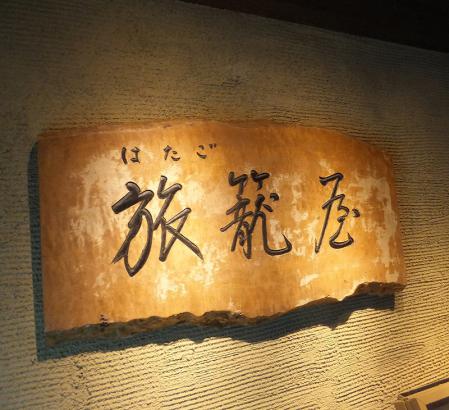 はたご
旅籠屋